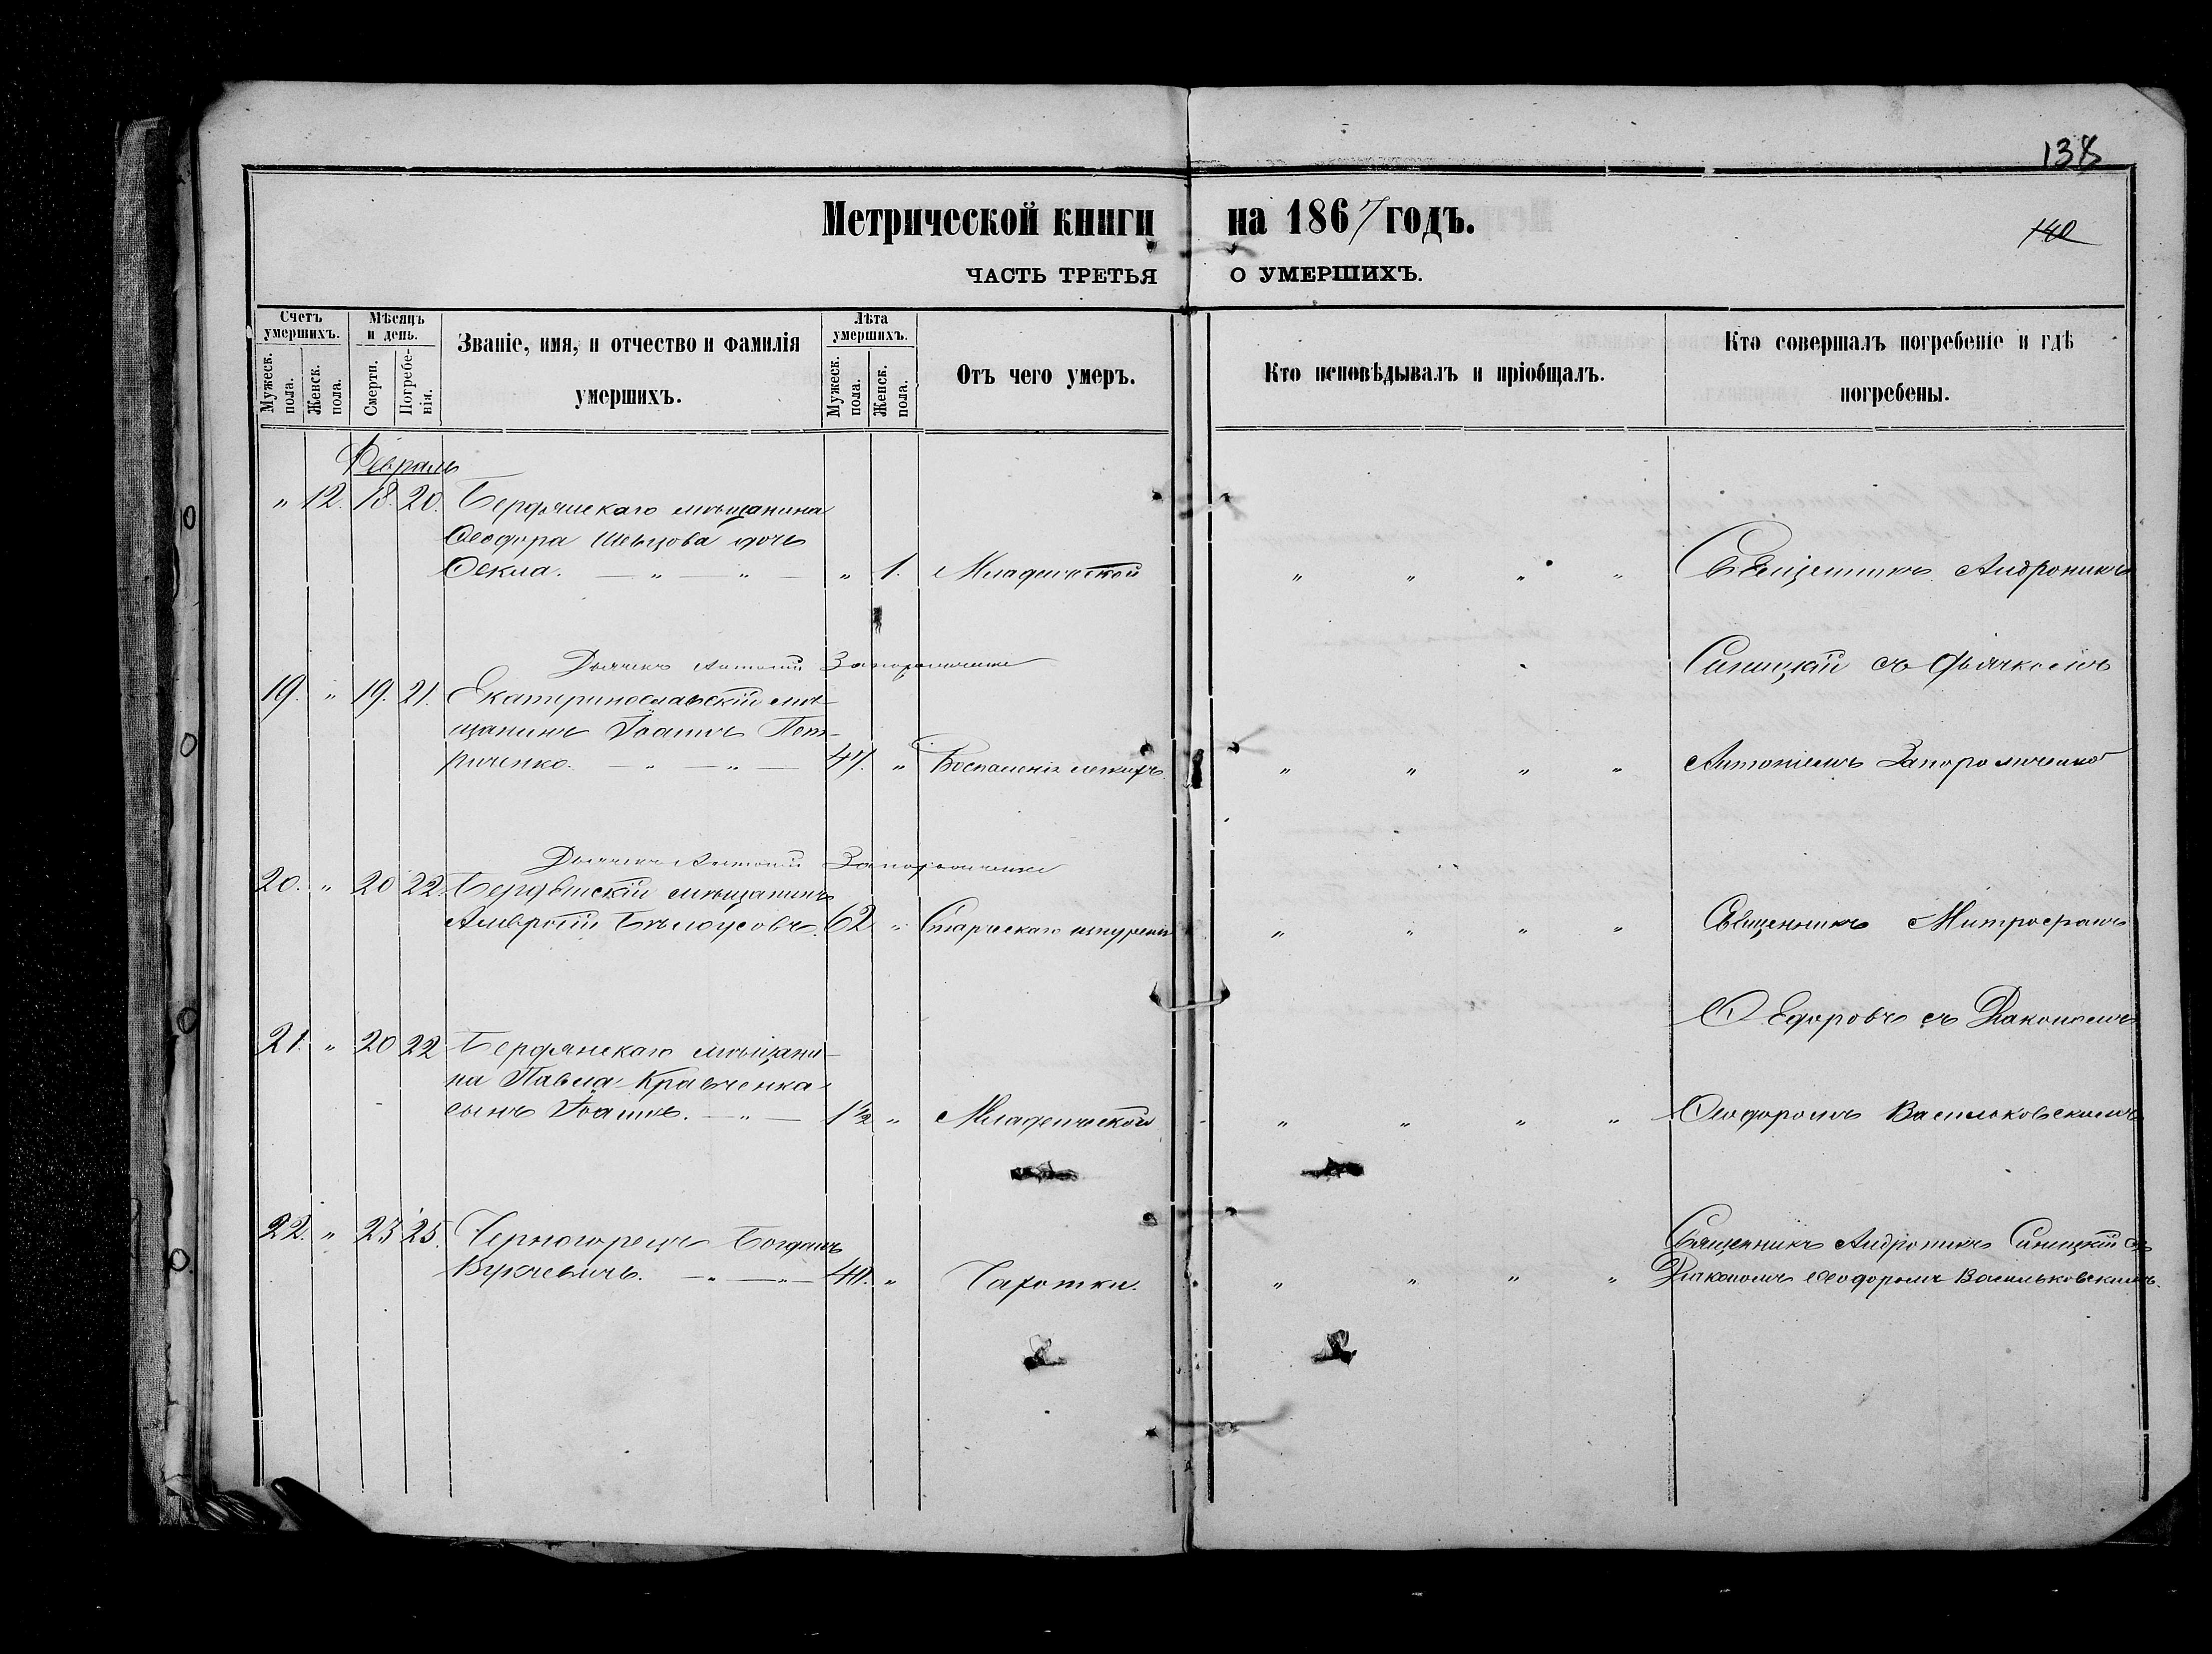 138
Метрической книги на 1867 годъ.
140
ЧАСТЬ ТРЕТЬЯ О УМЕРШИХЪ.
Счетъ умершихъ.
Мужеск. пола.
Женск. пола.
Мѣсяцъ и день.
Смерти.
Погребе-нія.
Званіе, имя, и отчество и фамилія
умершихъ.
Лѣта умершихъ.
Мужеск. пола.
Женск. пола.
Отъ чего умеръ.
Кто исповѣдывалъ и пріобщалъ.
Кто совершалъ погребеніе и гдѣ
погребены.
Февраль
" 12. 18. 20. Бердянскаго мѣщанина
Ѳеодора Шевцова дочь
Ѳекла. — " — " — " 1. Младенческой " " " " Священникъ Андроникъ
Дьячекъ Антоній Запорожченко
Синицкій съ дьячкомъ
19. " 19. 21. Екатеринославскій мѣ-
щанинъ Іоаннъ Пет-
риченко. — " — " — 47. " Воспаленія легкихъ " " " " Антоніемъ Запорожченко
Дьячекъ Антоній Запорожченко
20. " 20 22. Бердянскій мѣщанинъ
Амвросій Бѣлоусовъ. 62 " Старческаго изнуренія " " " " Священникъ Митрофанъ
Ѳедоровъ съ Діакономъ
21. " 20 22 Бердянскаго мѣщани-
на Павла Кравченка
сынъ Іоаннъ. — " — 1½ " Младенческой " " " " Ѳеодоромъ Васильковскимъ
22. " 23 25. Черногорецъ Богданъ Священникъ Андроникъ Синицкій съ
Вукчевичъ. — " — " — 40. " Чахотки. " " " " Діакономъ Ѳеодоромъ Васильковскимъ.